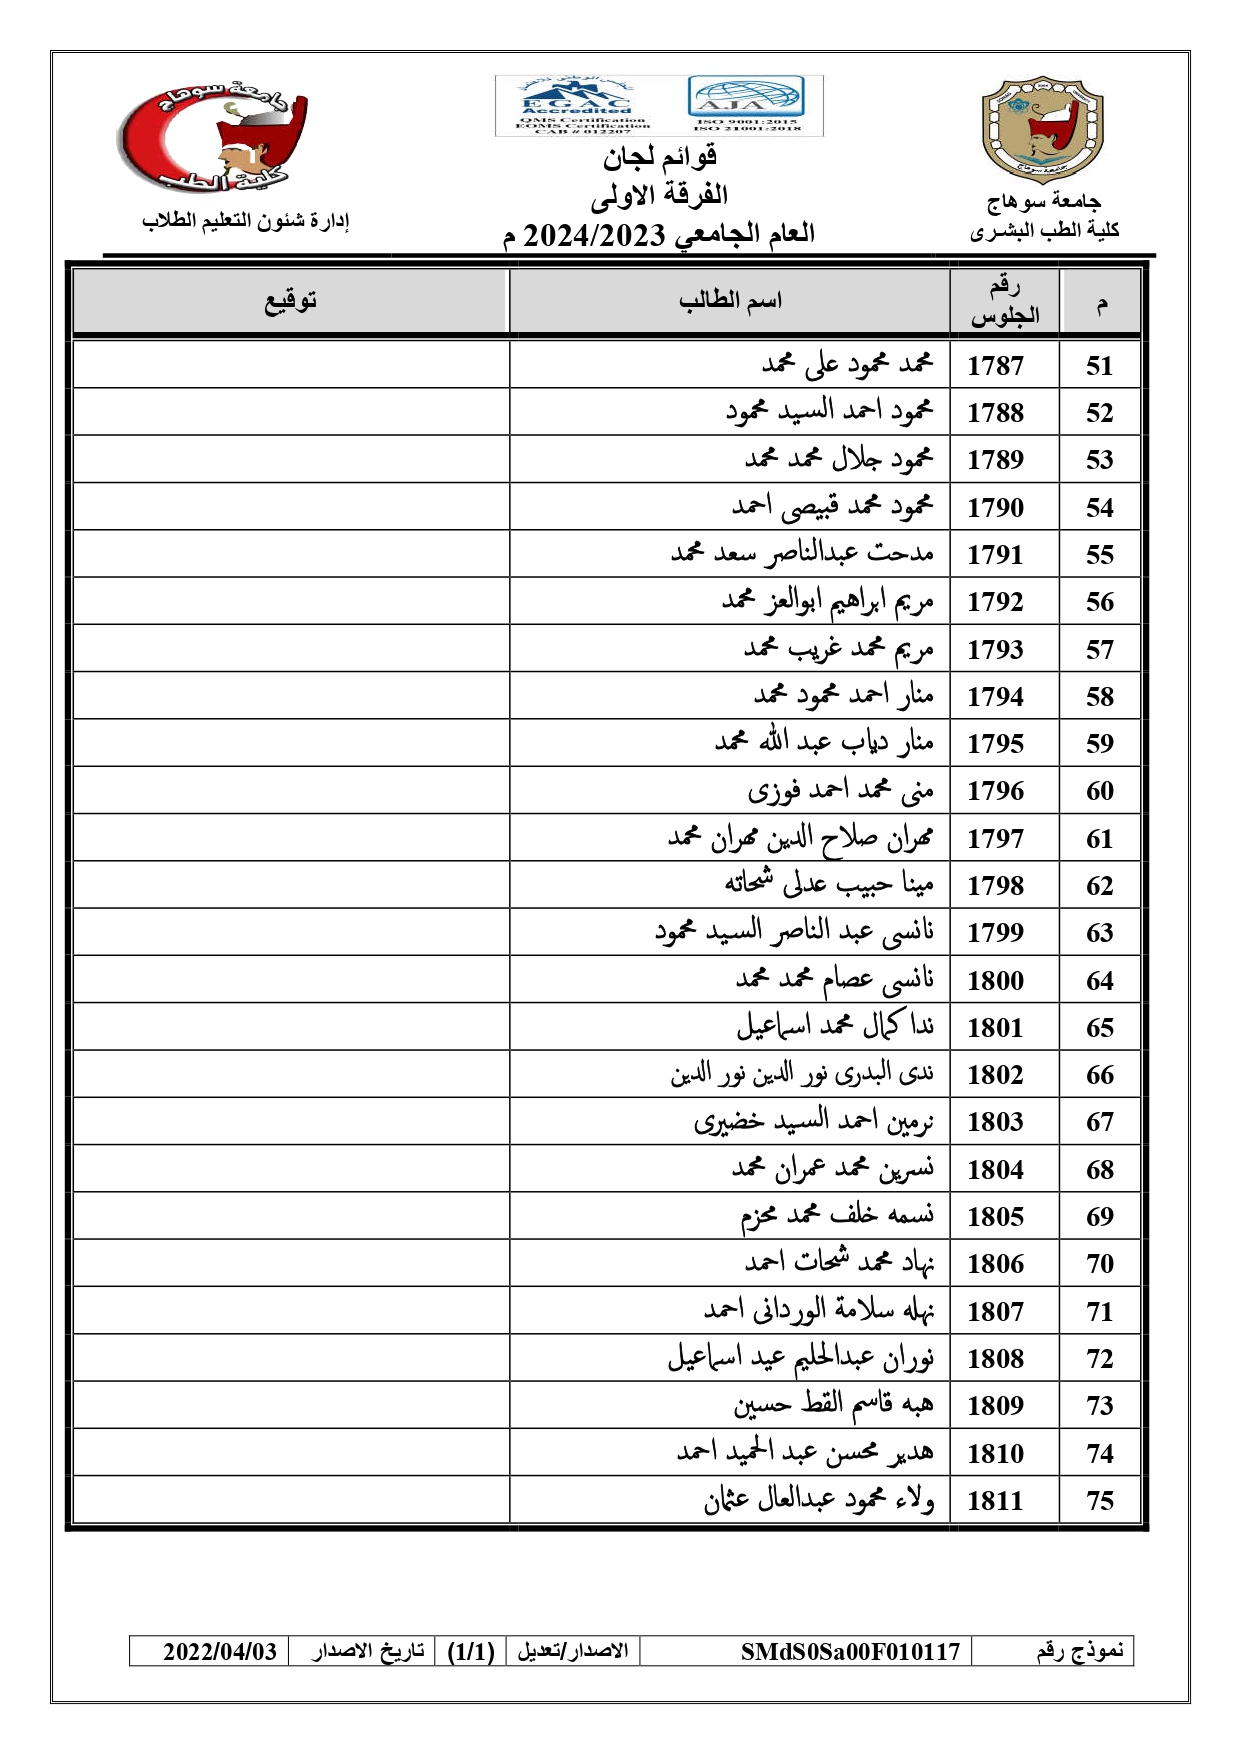 جامعة سوهاج
كلية الطب
إدارة شئون التعليم الطلاب
EGAC
Accredited
QMS Certification
EOMS Certification
CAB # 012207
AJA
ISO 9001:2015
ISO 21001:2018
قوائم لجان
الفرقة الاولى
العام الجامعي 2024/2023 م
جامعة سوهاج
جامعة سوهاج
كلية الطب البشرى
م رقم الجلوس اسم الطالب توقيع
51 1787 محمد محمود على محمد
52 1788 محمود احمد السيد محمود
53 1789 محمود جلال محمد محمد
54 1790 محمود محمد قبيصى احمد
55 1791 مدحت عبدالناصر سعد محمد
56 1792 مريم ابراهيم ابوالعز محمد
57 1793 مريم محمد غريب محمد
58 1794 منار احمد محمود محمد
59 1795 منار دياب عبد الله محمد
60 1796 منى محمد احمد فوزى
61 1797 مهران صلاح الدين مهران محمد
62 1798 مينا حبيب عدلى شحاته
63 1799 نانسى عبد الناصر السيد محمود
64 1800 نانسى عصام محمد محمد
65 1801 ندا كمال محمد اسماعيل
66 1802 ندى البدرى نور الدين نور الدين
67 1803 نرمين احمد السيد خضيرى
68 1804 نسرين محمد عمران محمد
69 1805 نسمه خلف محمد محزم
70 1806 نهاد محمد شحات احمد
71 1807 نهله سلامة الوردانى احمد
72 1808 نوران عبدالحليم عيد اسماعيل
73 1809 هبه قاسم القط حسين
74 1810 هدير محسن عبد الحميد احمد
75 1811 ولاء محمود عبدالعال عثمان
نموذج رقم SMdS0Sa00F010117 الاصدار/تعديل (1/1) تاريخ الاصدار 2022/04/03